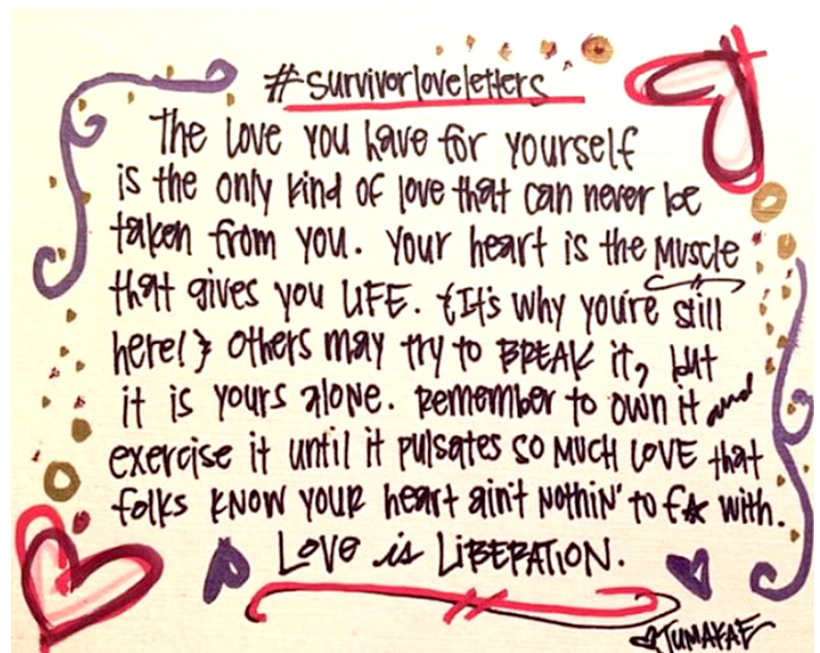 #survivorloveletters
The Love you have for yourself
is the only kind of love that can never be
taken from you. Your heart is the MUSCLE
that gives you LIFE. {It's why you're still
here!} others may try to BREAK it, but
it is yours alone. Remember to own it and
exercise it until it pulsates so MUCH LOVE that
folks KNOW YOUR heart ain't Nothin' to f☆ with.
LOVE is LIBERATION.
TUMAKAE